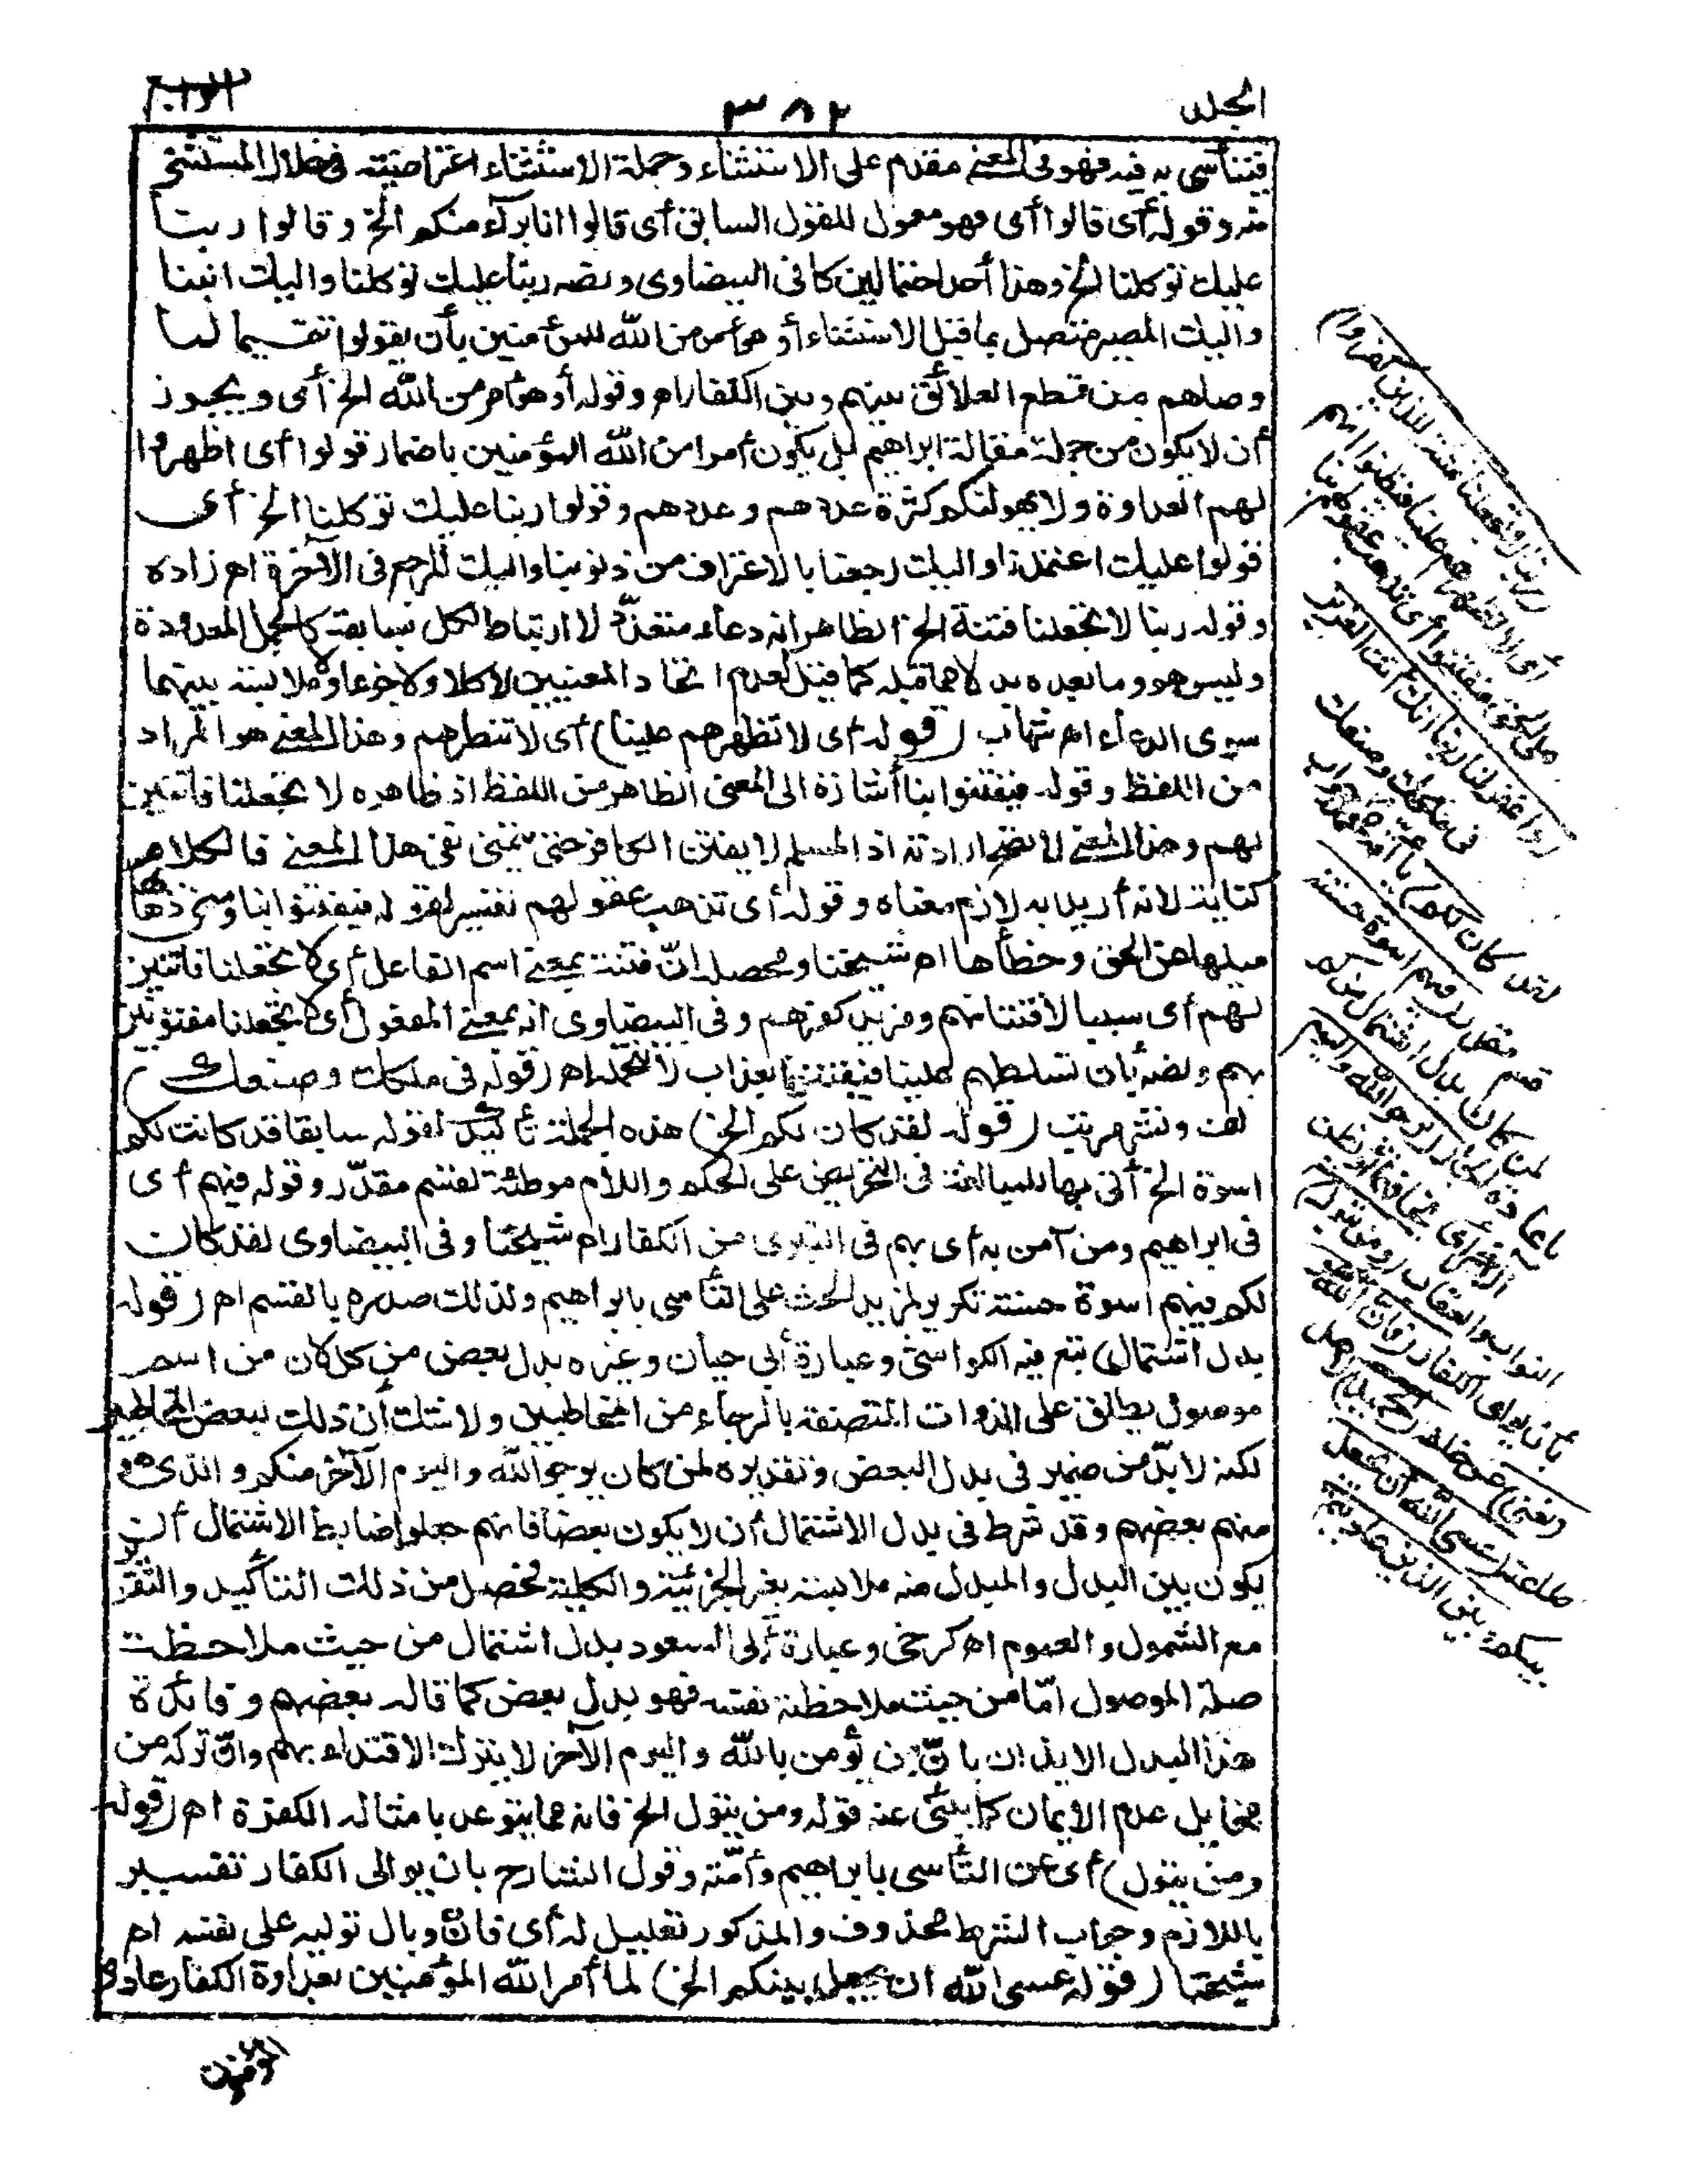 المجلد
٣٨٢
الرابع
فيتأسى به فيه فهو فى المعنى مقدم على الاستثناء وجملة الاستثناء اعتراضية فى خلال المستثنى
منه وقوله أى قالوا أى فهو معمول للقول السابق أى قالوا انا برآء منكم الخ وقالوا ربنا
عليك توكلنا الخ وهذا أحد احتمالين كما فى البيضاوى ونصه ربنا عليك توكلنا واليك انبنا
واليك المصير متصل بما قبل الاستثناء أو هو أمر من الله للمؤمنين بأن يقولوا تتميما لما
وصاهم به من قطع العلائق بينهم وبين الكفار اه وقوله أو هو أمر من الله الخ أى ويجوز
أن لا يكون من جملة مقالة ابراهيم بل يكون أمرا من الله للمؤمنين باضمار قولوا أى اظهروا
لهم العداوة ولا يهولنكم كثرة عددهم وعددهم وقولوا ربنا عليك توكلنا الخ أى
قولوا عليك اعتمدنا واليك رجعنا بالاعتراف من ذنوبنا واليك المرجع فى الآخرة اه زاده
وقوله ربنا لا تجعلنا فتنة الخ الظاهر انه دعاء متعدد لا ارتباط لكل بسابقه كالجمل المعدودة
وليس هو وما بعده بدلا مما قبله كما قيل لعدم اتحاد المعنيين لا كلا ولا جزءا ولا ملابسة بينهما
سوى الدعاء اه شهاب (قوله أى لا تظهرهم علينا) أى لا تنصرهم وهذا المعنى هو المراد
من اللفظ وقوله فيفتنوا بنا أشارة الى المعنى الظاهر من اللفظ اذ ظاهره لا تجعلنا فاتنين
لهم وهذا المعنى لا تصح ارادته اذ المسلم لا يفتن الكافر حتى يتمنى نفى هذا المعنى فالكلام
كناية لانه أريد به لازم معناه وقوله أى تذهب عقولهم تفسير لقوله فيفتنوا بنا
ميلها عن الحق وخطأها اه شيخنا ومحصله ان فتنة بمعنى اسم الفاعل أى لا تجعلنا فاتنين
لهم أى سببا لافتتانهم ومزيد كفرهم وفى البيضاوى انه بمعنى المفعول أى لا تجعلنا مفتونين
بهم ونصه بأن تسلطهم علينا فيفتنونا بعذاب لا نتحمله اه (قوله فى ملكك وصنعك)
لف ونشر مرتب (قوله لقد كان لكم الخ) هذه الجملة تأكيد لقوله سابقا قد كانت لكم
اسوة الخ أتى بها للمبالغة فى التحريض على الحكم واللام موطئة لقسم مقدّر وقوله فيهم أى
فى ابراهيم ومن آمن به أى بهم فى التبرى من الكفار اه شيخنا وفى البيضاوى لقد كان
لكم فيهم اسوة حسنة تكرير لمزيد الحث على التأسى بابراهيم ولذلك صدره بالقسم اه (قوله
بدل اشتمال) تبع فيه الكواشى وعبارة أبى حيان وغيره بدل بعض من كل كان من اسم
موصول يطلق على الذوات المتصفة بالرجاء من المخاطبين ولا شك أن ذلك لبعض المخاطبين
لكنه لا بدّ من ضمير فى بدل البعض وتقديره لمن كان يرجو الله واليوم الآخر منكم والذى هو
منهم بعضهم وقد شرط فى بدل الاشتمال أن لا يكون بعضا فانهم جعلوا ضابط الاشتمال أن
يكون بين البدل والمبدل منه ملابسة بغير الجزئية والكلية فحصل من ذلك التأكيد والتقرير
مع الشمول والعموم اه كرخى وعبارة أبى السعود بدل اشتمال من حيث ملاحظة
صلة الموصول امّا من حيث ملاحظة نفسه فهو بدل بعض كما قاله بعضهم وفائدة
هذا البدل الايذان بأن من يؤمن بالله واليوم الآخر لا يترك الاقتداء بهم وان تركه من
مخايل عدم الايمان كما ينبئ عنه قوله ومن يتول الخ فانه مما يتوعد بامثاله الكفرة اه (قوله
ومن يتول) أى عن التأسى بابراهيم وأمّته وقول الشارح بان يوالى الكفار تفسير
باللازم وجواب الشرط محذوف والمذكور تعليل له أى فان وبال توليه على نفسه اه
شيخنا (قوله عسى الله ان يجعل بينكم الخ) لما أمر الله المؤمنين بعداوة الكفار عادى
المؤمنون
(ربنا لا تجعلنا فتنة للذين كفروا)
أى لا تظهرهم علينا فيظنوا انهم
على الحق فيفتنوا أى تذهب عقولهم بنا
(واغفر لنا ربنا انك أنت العزيز
فى ملكك وصنعك
لقد كان لكم) يا أمة محمد جواب
قسم مقدر (فيهم اسوة حسنة
لمن كان) بدل اشتمال من كم
باعادة الجار (يرجو الله واليوم
الآخر) أى يخافهما أو يظن
الثواب والعقاب (ومن يتول)
بأن يوالى الكفار (فان الله هو
الغنى) عن خلقه (الحميد) لاهل
طاعته (عسى الله أن يجعل
بينكم وبين الذين عاديتم